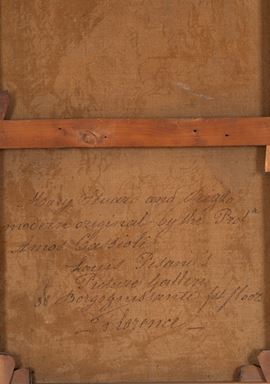 Mary Stuard and Rizzio
modern original by the Profr
Amos Cassioli
Louis Pisani's
Picture Gallery
Borgognissanti 1st floor
Florence